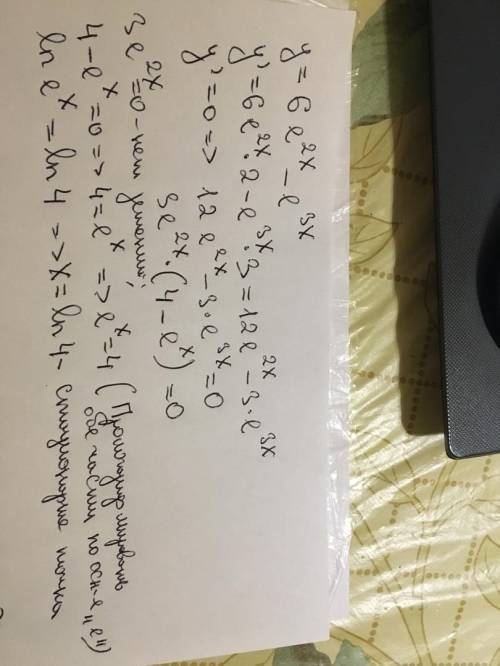 y = 6e^{2x} - e^{3x}
y' = 6e^{2x} · 2 - e^{3x} · 3 = 12e^{2x} - 3 · e^{3x}
y' = 0 => 12e^{2x} - 3 · e^{3x} = 0
3e^{2x} · (4 - e^x) = 0
3e^{2x} = 0 - нет решений;
4 - e^x = 0 => 4 = e^x => e^x = 4 (Прологарифмировать обе части по осн-е „e")
ln e^x = ln 4 => x = ln 4 - стационарная точка